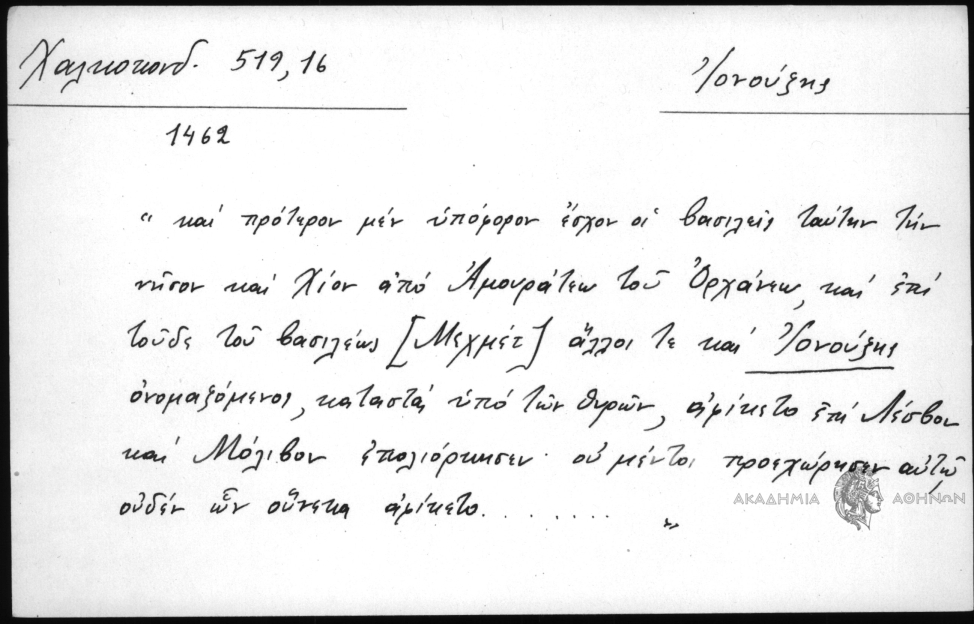 Χαλκοκονδ. 519,16
Ἰονούζης
1462
"καί πρότερον μέν ὑπόφορον ἔσχον οἱ βασιλεῖς ταύτην τήν
νῆσον καί Χίον ἀπό Ἀμουράτεω τοῦ Ὀρχάνεω, καί ἐπί
τοῦδε τοῦ βασιλέως [Μεχμέτ] ἄλλοι τε καί Ἰονούζης
ὀνομαζόμενος, καταστάς ὑπό τῶν θυρῶν, ἀφίκετο ἐπί Λέσβον
καί Μόλιβον ἐπολιόρκησεν· οὐ μέντοι προεχώρησεν αὐτῷ
οὐδέν ὧν οὕνεκα ἀφίκετο........ "
ΑΚΑΔΗΜΙΑ ΑΘΗΝΩΝ